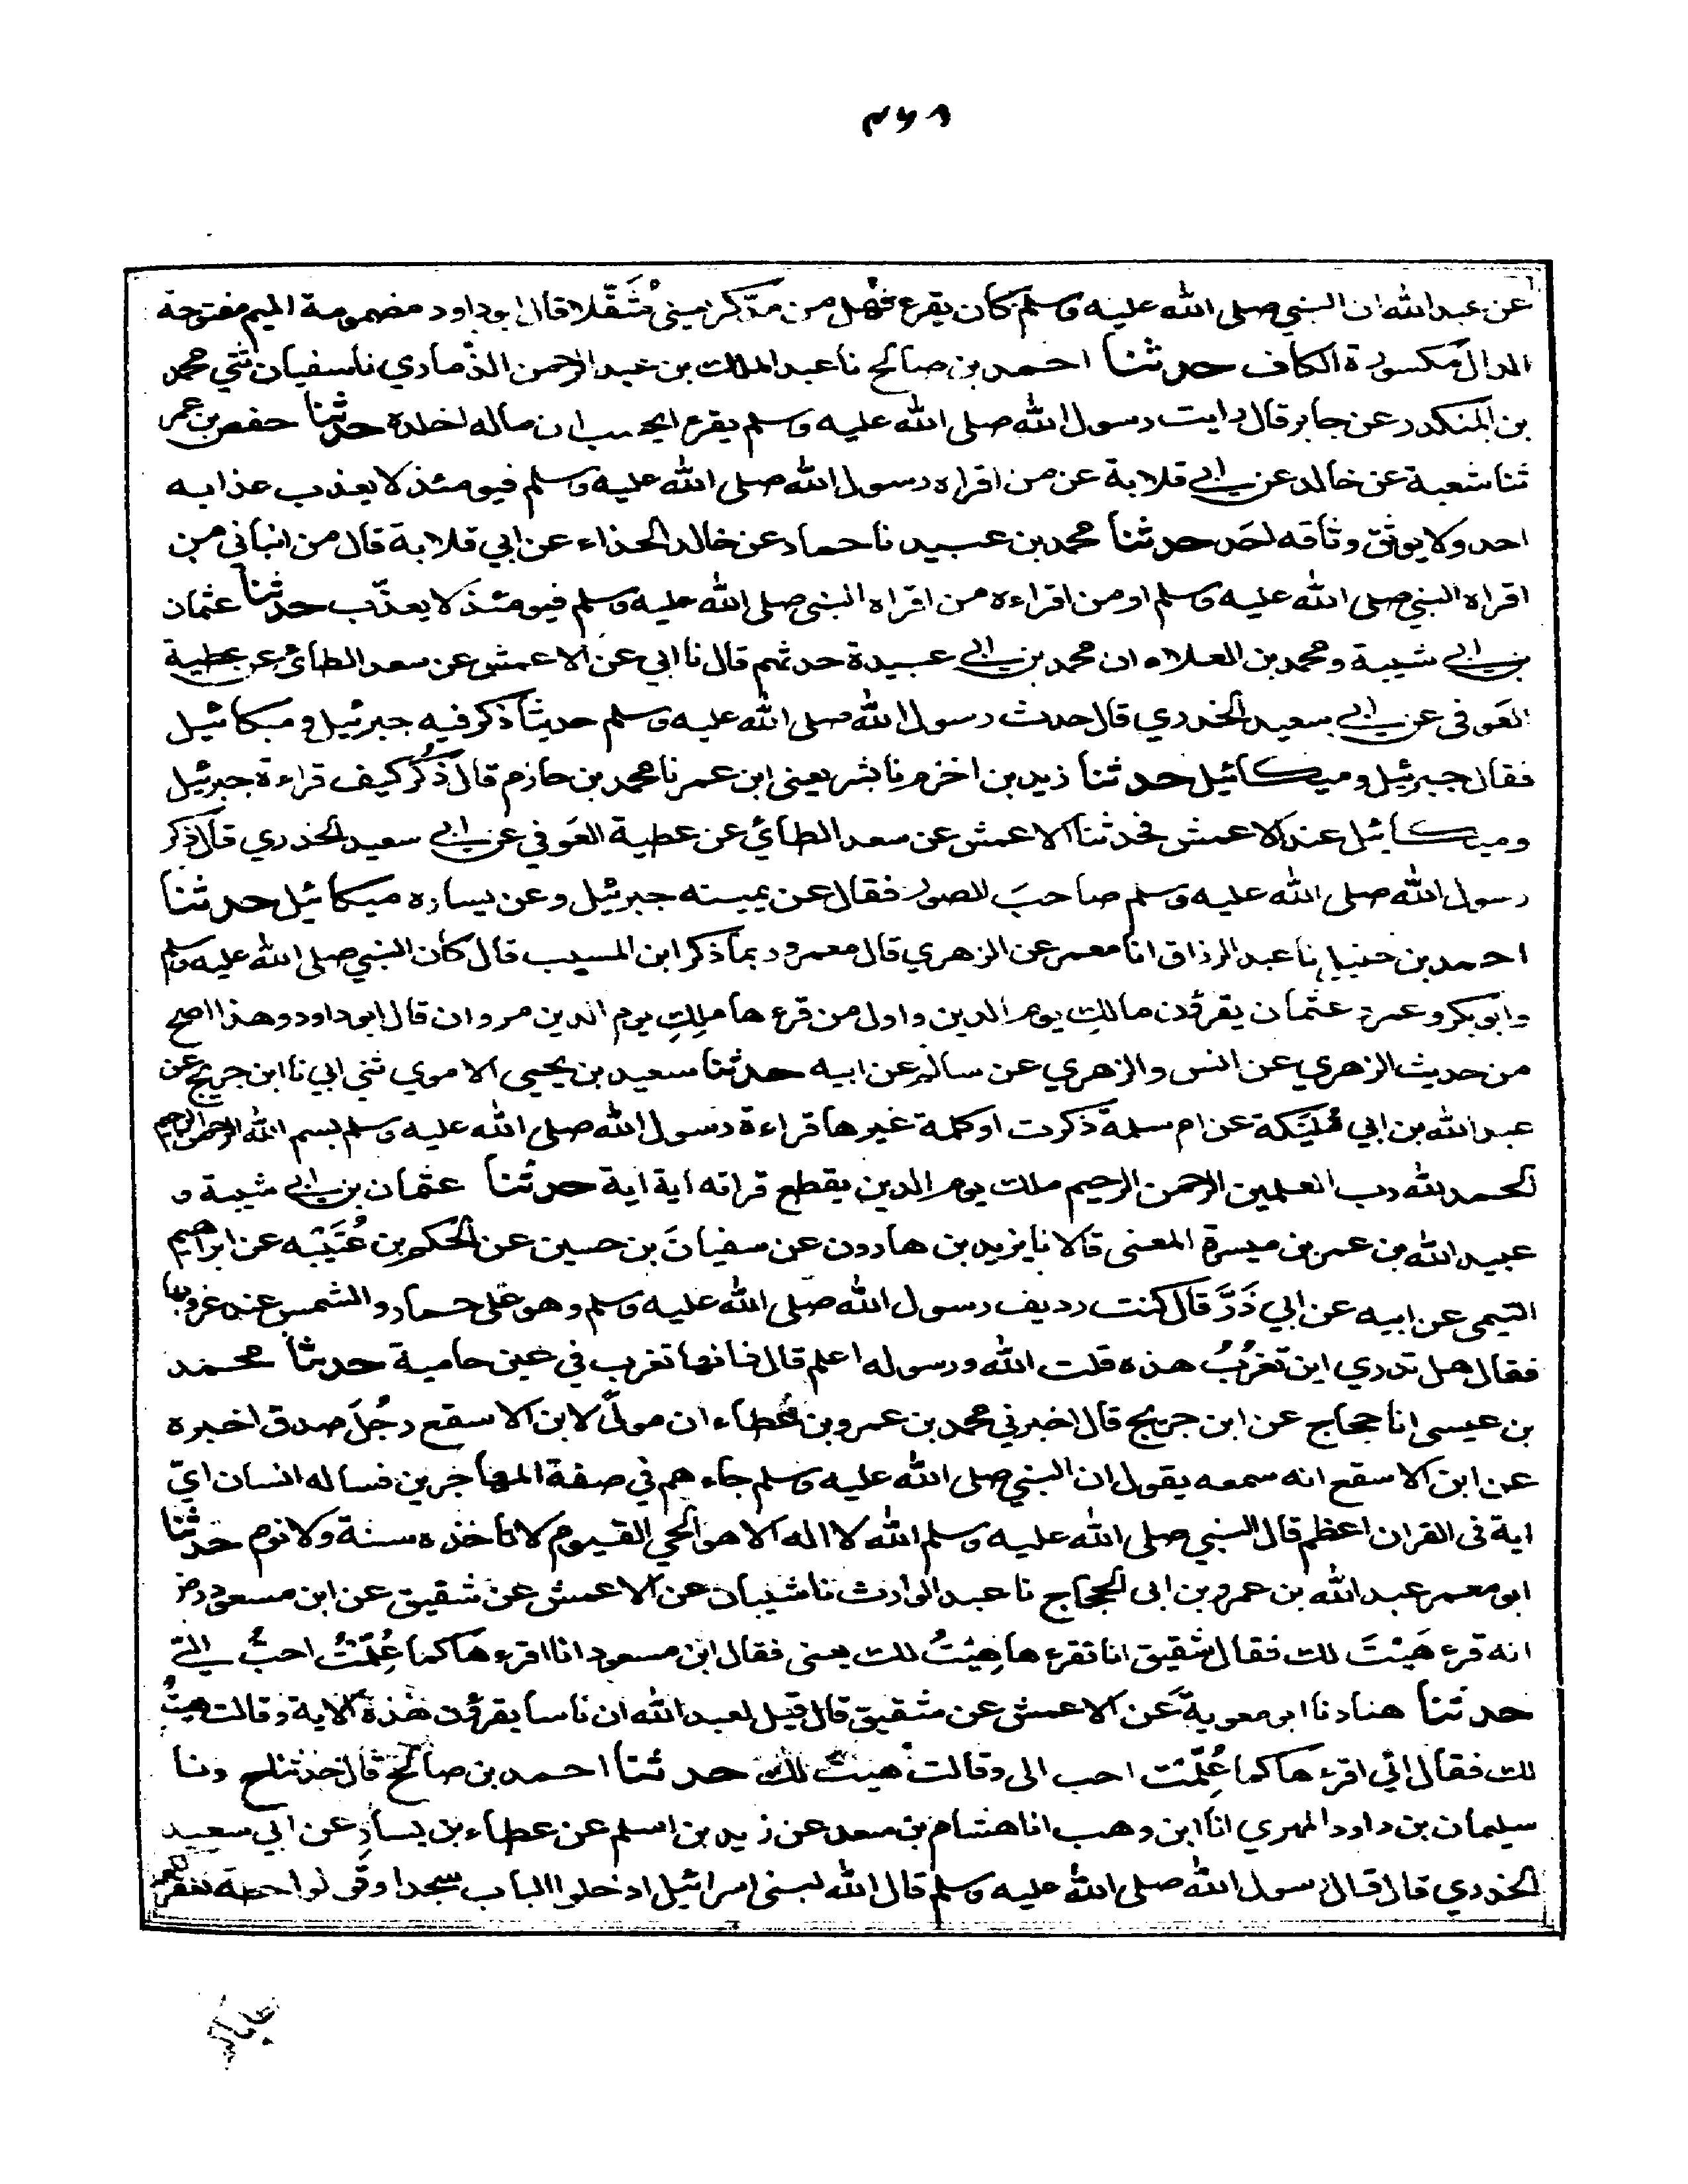 ٤٦٨
عن عبد الله ان النبي صلى الله عليه وسلم كان يقرء فهل من مدّكر يعني مُثَقّلا قال ابو داود مضمومة الميم مفتوحة
الدال مكسورة الكاف حدثنا احمد بن صالح نا عبد الملك بن عبد الرحمن الذّماري نا سفيان ثني محمد
بن المنكدر عن جابر قال رايت رسول الله صلى الله عليه وسلم يقرء ايحسب ان ماله اخلده حدثنا حفص بن عمر
ثنا شعبة عن خالد عن ابي قلابة عن من اقراه رسول الله صلى الله عليه وسلم فيومئذ لا يعذب عذابه
احد ولا يوثق وثاقه احَد حدثنا محمد بن عبيد نا حماد عن خالد الحذاء عن ابي قلابة قال من انباني من
اقراه النبي صلى الله عليه وسلم او من اقراءه من اقراه النبي صلى الله عليه وسلم فيومئذ لا يعذّب حدثنا عثمان
بن ابي شيبة ومحمد بن العلاء ان محمد بن ابي عبيدة حدثهم قال نا ابي عن الاعمش عن سعد الطائي عن عطية
العَوفي عن ابي سعيد الخدري قال حدث رسول الله صلى الله عليه وسلم حديثا ذكر فيه جبرئيل وميكائيل
فقال جبرئيل وميكائيل حدثنا زيد بن اخزم نا بشر يعني ابن عمر نا محمد بن حازم قال ذُكر كيف قراءة جبرئيل
وميكائيل عند الاعمش فحدثنا الاعمش عن سعد الطائي عن عطية العَوفي عن ابي سعيد الخدري قال ذكر
رسول الله صلى الله عليه وسلم صاحبَ الصور فقال عن يمينه جبرئيل وعن يساره ميكائيل حدثنا
احمد بن حنبل نا عبد الرزاق انا معمر عن الزهري قال معمر وربما ذكر ابن المسيب قال كان النبي صلى الله عليه وسلم
وابو بكر وعمر وعثمان يقرؤن مالكِ يوم الدين واول من قرء ها ملِكِ يوم الدين مروان قال ابو داود وهذا اصح
من حديث الزهري عن انس والزهري عن سالم عن ابيه حدثنا سعيد بن يحيى الاموي ثني ابي نا ابن جريج عن
عبد الله بن ابي مُلَيَكة عن ام سلمة ذكرت او كلمة غيرها قراءة رسول الله صلى الله عليه وسلم بسم الله الرحمن الرحيم
الحمد لله رب العلمين الرحمن الرحيم ملك يوم الدين يقطع قراته اية اية حدثنا عثمان بن ابي شيبة و
عبيد الله بن عمر بن ميسرة المعنى قالا نا يزيد بن هارون عن سفيانَ بن حسين عن الحكم بن عُتَيبَه عن ابراهيم
التيمي عن ابيه عن ابي ذَرّ قال كنت رديف رسول الله صلى الله عليه وسلم وهو على حمار والشمس عند غروبها
فقال هل تدري اين تغرُبُ هذه قلت الله ورسوله اعلم قال فانها تغرب في عين حامية حدثنا محمد
بن عيسى انا حجاج عن ابن جريج قال اخبرني محمد بن عمرو بن عطاء ان مولًى لابن الاسقع رجُلَ صدق اخبره
عن ابن الاسقع انه سمعه يقول ان النبي صلى الله عليه وسلم جاءهم في صفة المهاجرين فساله انسان ايّ
اية في القران اعظم قال النبي صلى الله عليه وسلم الله لا اله الا هو الحي القيوم لا تاخذه سنة ولا نوم حدثنا
ابو معمر عبد الله بن عمرو بن ابي الحجاج نا عبد الوارث نا شيبان عن الاعمش عن شقيق عن ابن مسعود رض
انه قرء هَيْتَ لك فقال شقيق انا نقرء ها هِيْتُ لك يعني فقال ابن مسعود انا اقرء هَا كما عُلّمتُ احبُّ الي
حدثنا هناد نا ابو معوية عن الاعمش عن شقيق قال قيل لعبد الله ان ناسا يقرؤن هذه الاية وقالت هيتُ
لك فقال اني اقرء ها كما عُلّمت احب الى وقالت هيتَ لك حدثنا احمد بن صالح قال حدثنا ح ونا
سليمان بن داود المهري انا ابن وهب انا هشام بن سعد عن زيد بن اسلم عن عطاء بن يسارٍ عن ابي سعيد
الخدري قال قال رسول الله صلى الله عليه وسلم قال الله لبني اسرائيل ادخلوا الباب سجدا وقولوا حطة تغفر